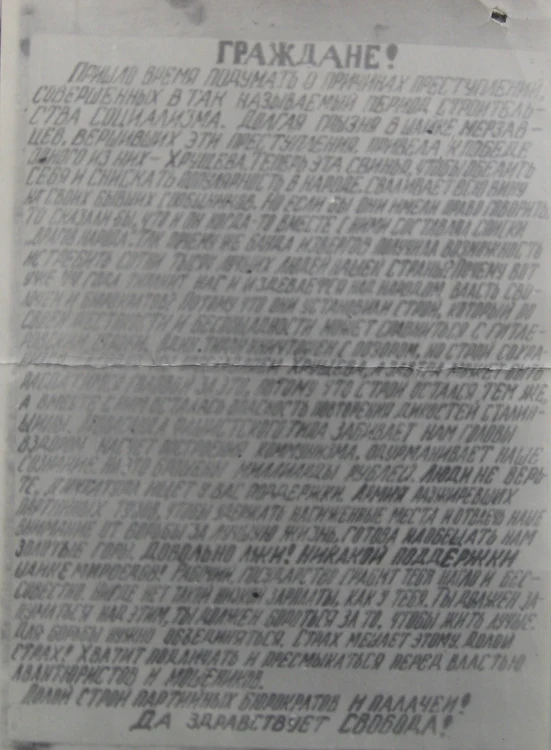 ГРАЖДАНЕ!
ПРИШЛО ВРЕМЯ ПОДУМАТЬ О ПРИЧИНАХ ПРЕСТУПЛЕНИЙ,
СОВЕРШЕННЫХ В ТАК НАЗЫВАЕМЫЙ ПЕРИОД СТРОИТЕЛЬ-
СТВА СОЦИАЛИЗМА. ДОЛГАЯ ГРЫЗНЯ В ШАЙКЕ МЕРЗАВ-
ЦЕВ, ВЕРШИВШИХ ЭТИ ПРЕСТУПЛЕНИЯ, ПРИВЕЛА К ПОБЕДЕ
ОДНОГО ИЗ НИХ – ХРУЩЕВА. ТЕПЕРЬ ЭТА СВИНЬЯ, ЧТОБЫ ОБЕЛИТЬ
СЕБЯ И СНИСКАТЬ ПОПУЛЯРНОСТЬ В НАРОДЕ, СВАЛИВАЕТ ВСЮ ВИНУ
НА СВОИХ БЫВШИХ СООБЩНИКОВ. НО ЕСЛИ БЫ ОНИ ИМЕЛИ ПРАВО ГОВОРИТЬ,
ТО СКАЗАЛИ БЫ, ЧТО И ОН КОГДА-ТО ВМЕСТЕ С НИМИ СОСТАВЛЯЛ СПИСКИ
ПОЧЕМУ ЖЕ БАНДА ИЗВЕРГОВ ПОЛУЧИЛА ВОЗМОЖНОСТЬ
ИСТРЕБИТЬ СОТНИ ТЫСЯЧ ЛУЧШИХ ЛЮДЕЙ НАШЕЙ СТРАНЫ? ПОЧЕМУ ВОТ
УЖЕ 44 ГОДА НАС И ИЗДЕВАЕТСЯ НАД НАРОДОМ ВЛАСТЬ
И БЮРОКРАТОВ? ПОТОМУ ЧТО ОНИ УСТАНОВИЛИ СТРОЙ, КОТОРЫЙ ПО
СВОЕЙ ЖЕСТОКОСТИ И БЕСПОЩАДНОСТИ МОЖЕТ СРАВНИТЬСЯ С ГИТЛЕ-
С НО СТРОЙ
ХРУЩЕВА
ГОЛОВОЙ ЗА ЭТО, ПОТОМУ ЧТО СТРОЙ ОСТАЛСЯ ТЕМ ЖЕ,
А ВМЕСТЕ С НИМ ОСТАЛАСЬ ОПАСНОСТЬ ПОВТОРЕНИЯ ДИКОСТЕЙ СТАЛИН-
ЩИНЫ. ПРОПАГАНДА ФАШИСТСКОГО ТИПА ЗАБИВАЕТ НАМ ГОЛОВЫ
ВЗДОРОМ НАСЧЕТ ПОСТРОЕНИЯ КОММУНИЗМА, ОДУРМАНИВАЕТ НАШЕ
СОЗНАНИЕ. НА ЭТО БРОШЕНЫ МИЛЛИАРДЫ РУБЛЕЙ. ЛЮДИ НЕ ВЕРЬ-
ТЕ. ДИКТАТУРА ИЩЕТ У ВАС ПОДДЕРЖКИ. АРМИЯ РАЗЖИРЕВШИХ
ПАРТИЙНЫХ ТУЗОВ, ЧТОБЫ УДЕРЖАТЬ НАСИЖЕННЫЕ МЕСТА И ОТВЛЕЧЬ НАШЕ
ВНИМАНИЕ ОТ БОРЬБЫ ЗА ЛУЧШУЮ ЖИЗНЬ, ГОТОВА НАОБЕЩАТЬ НАМ
ЗОЛОТЫЕ ГОРЫ. ДОВОЛЬНО ЛЖИ! НИКАКОЙ ПОДДЕРЖКИ
ШАЙКЕ МИРОЕДОВ! РАБОЧИЙ, ГОСУДАРСТВО ГРАБИТ ТЕБЯ НАГЛО И БЕС-
СОВЕСТНО. НИГДЕ НЕТ ТАКОЙ НИЗКОЙ ЗАРПЛАТЫ, КАК У ТЕБЯ. ТЫ ДОЛЖЕН ЗА-
ДУМАТЬСЯ НАД ЭТИМ, ТЫ ДОЛЖЕН БОРОТЬСЯ ЗА ТО, ЧТОБЫ ЖИТЬ ЛУЧШЕ.
ДЛЯ БОРЬБЫ НУЖНО ОБЪЕДИНЯТЬСЯ. СТРАХ МЕШАЕТ ЭТОМУ. ДОЛОЙ
СТРАХ! ХВАТИТ ПОДЛИЧАТЬ И ПРЕСМЫКАТЬСЯ ПЕРЕД ВЛАСТЬЮ
АВАНТЮРИСТОВ И МОШЕННИКОВ.
ДОЛОЙ СТРОЙ ПАРТИЙНЫХ БЮРОКРАТОВ И ПАЛАЧЕЙ!
ДА ЗДРАВСТВУЕТ СВОБОДА!